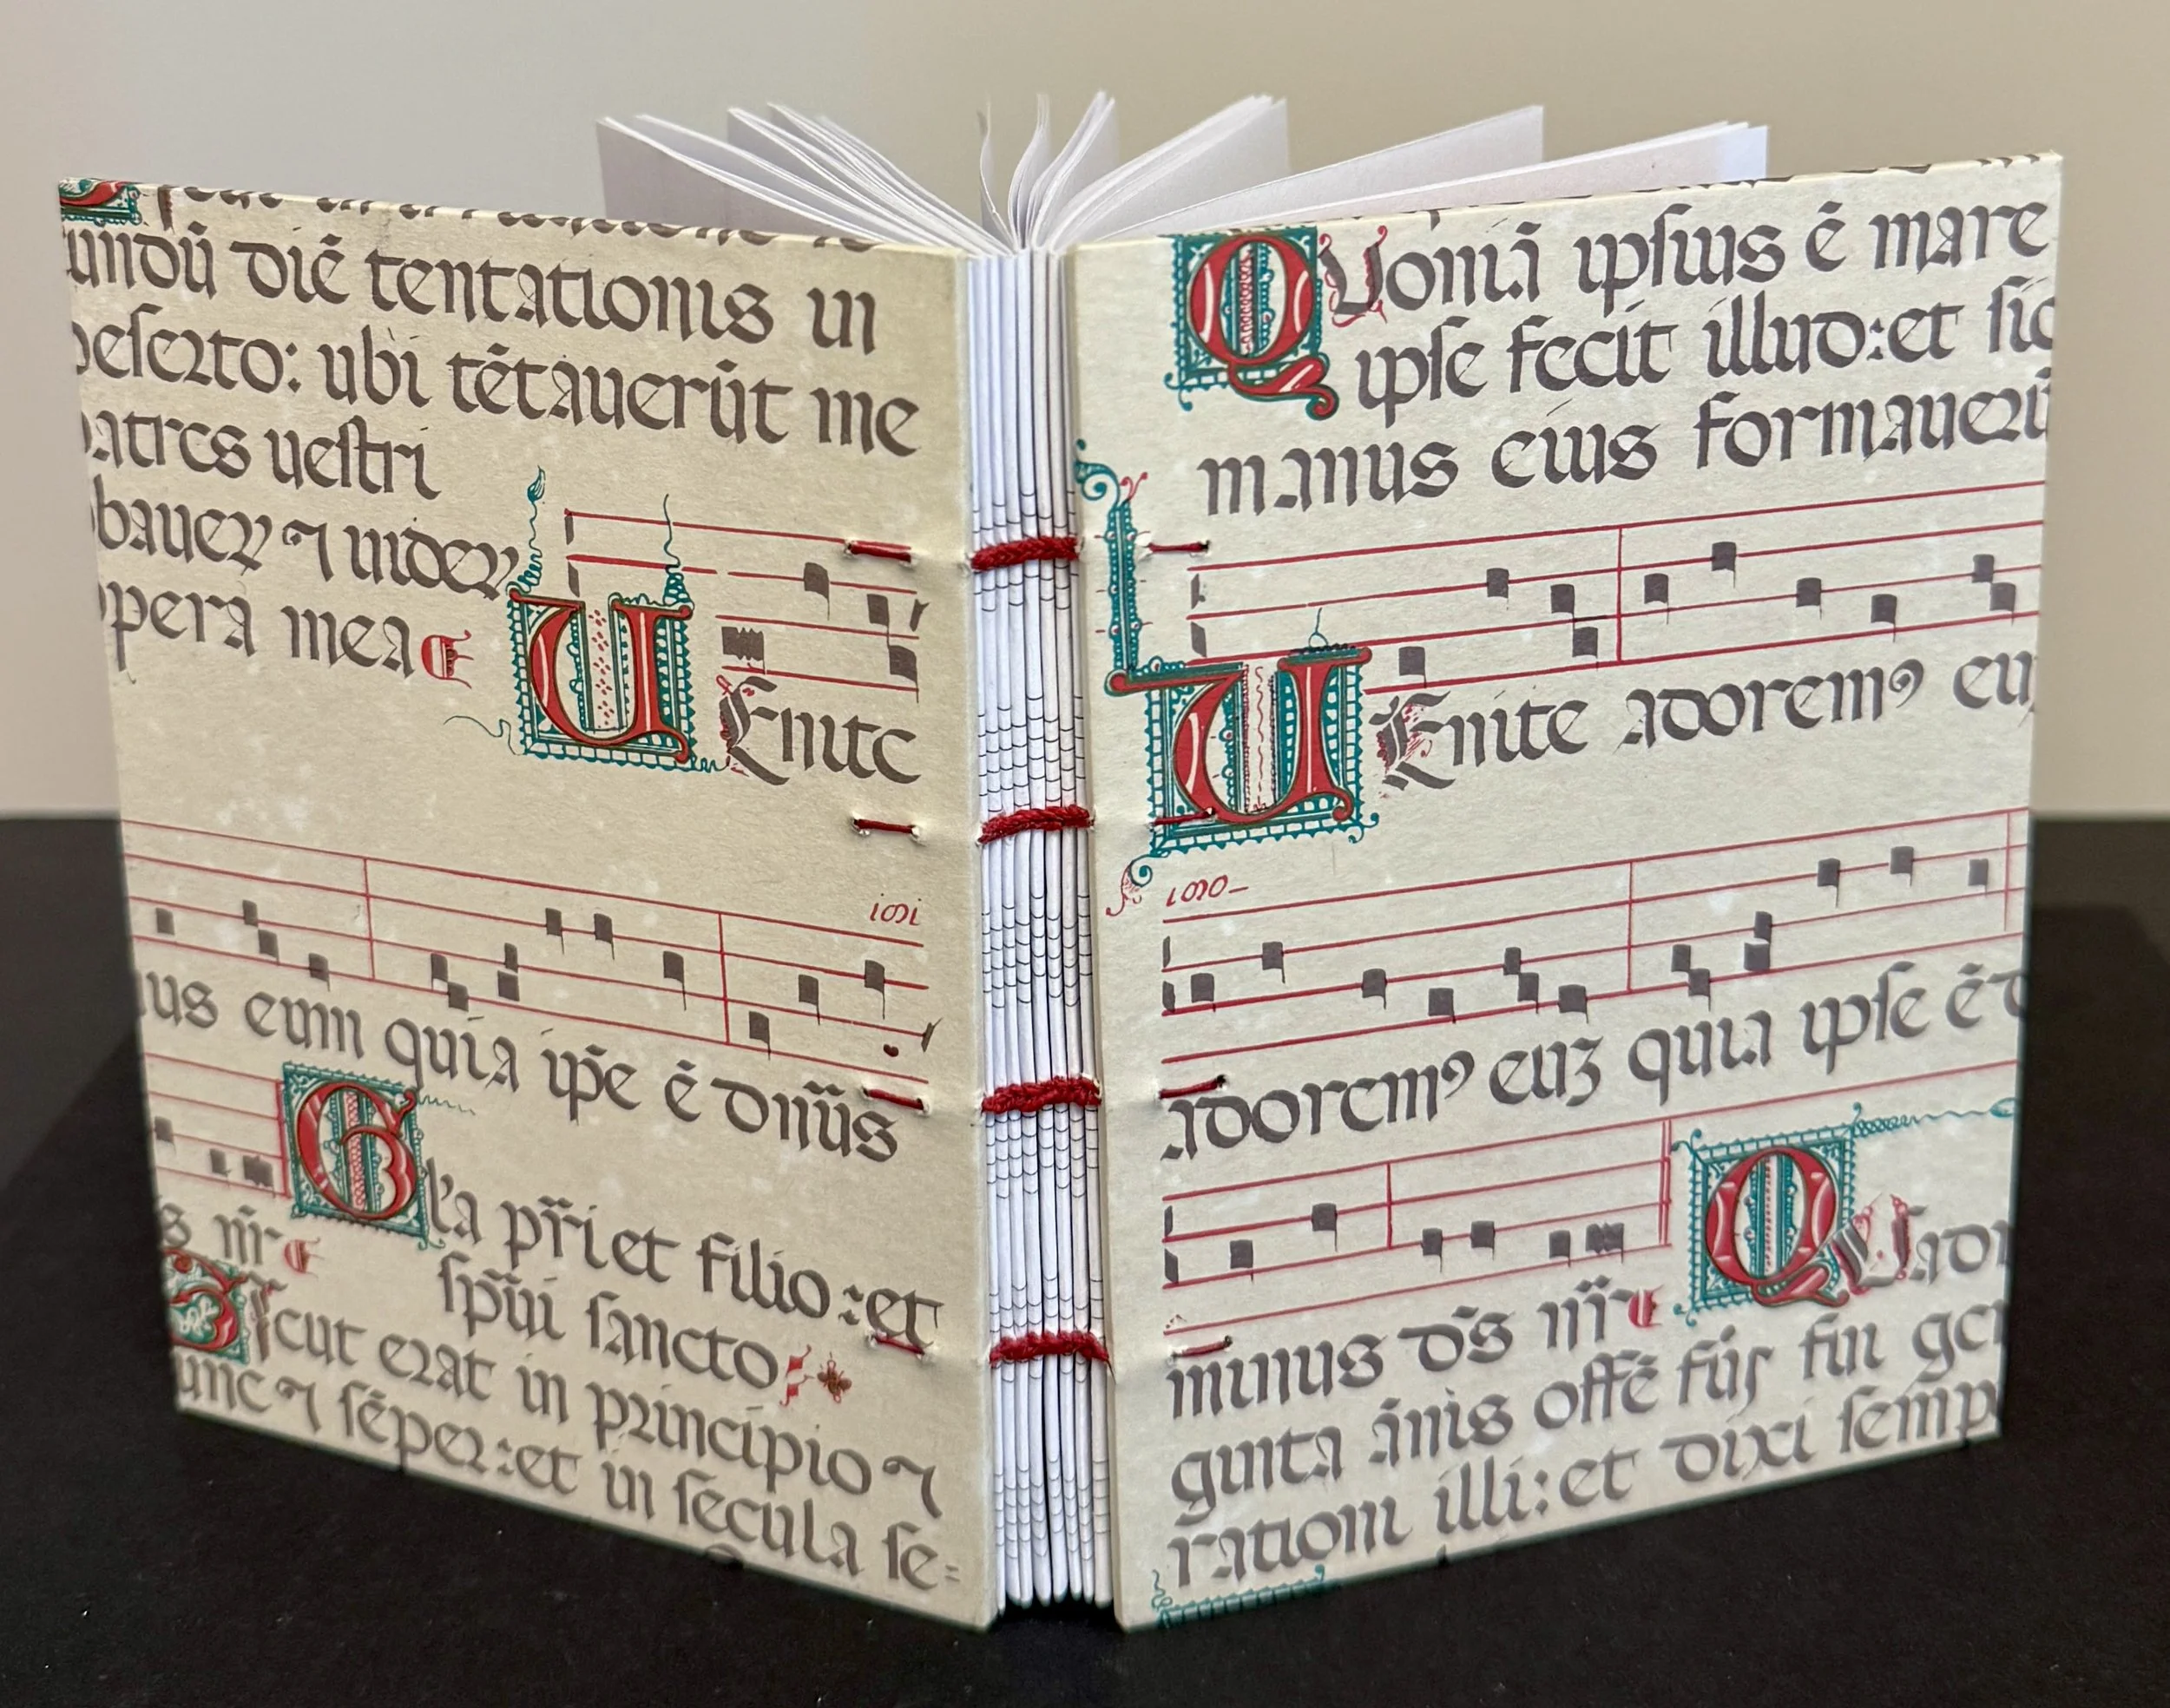 undū diē tentationis in
deserto: ubi tētauerūt me
patres uestri
bauer ⁊ uider
opera mea
UEnite
ioi
us eum quia ip̄e ē dn̄us
Gl'a pr̄i et filio: et
s nr̄
sp̄ui sancto
Sicut erat in principio ⁊
unc ⁊ sēper: et in secula se=
QUoniā ipsius ē mare
ipse fecit illud: et sic
manus eius formauerū
UEnite adoremꝰ eu
adoremꝰ euʒ quia ipse ē d
minus ds̄ nr̄
QUadr
ginta ānis offē
gen
rationi illi: et dixi semp